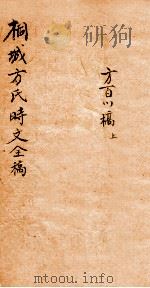 方百川稿 上
桐城方氏時文全稿
mtoou.info